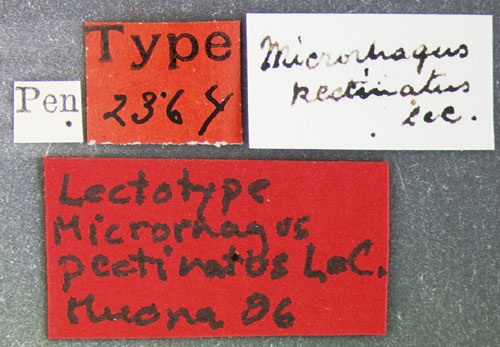 Pen
Type
2364
Microrhagus
pectinatus
Lec.
Lectotype
Microrhagus
pectinatus LeC.
Muona 86